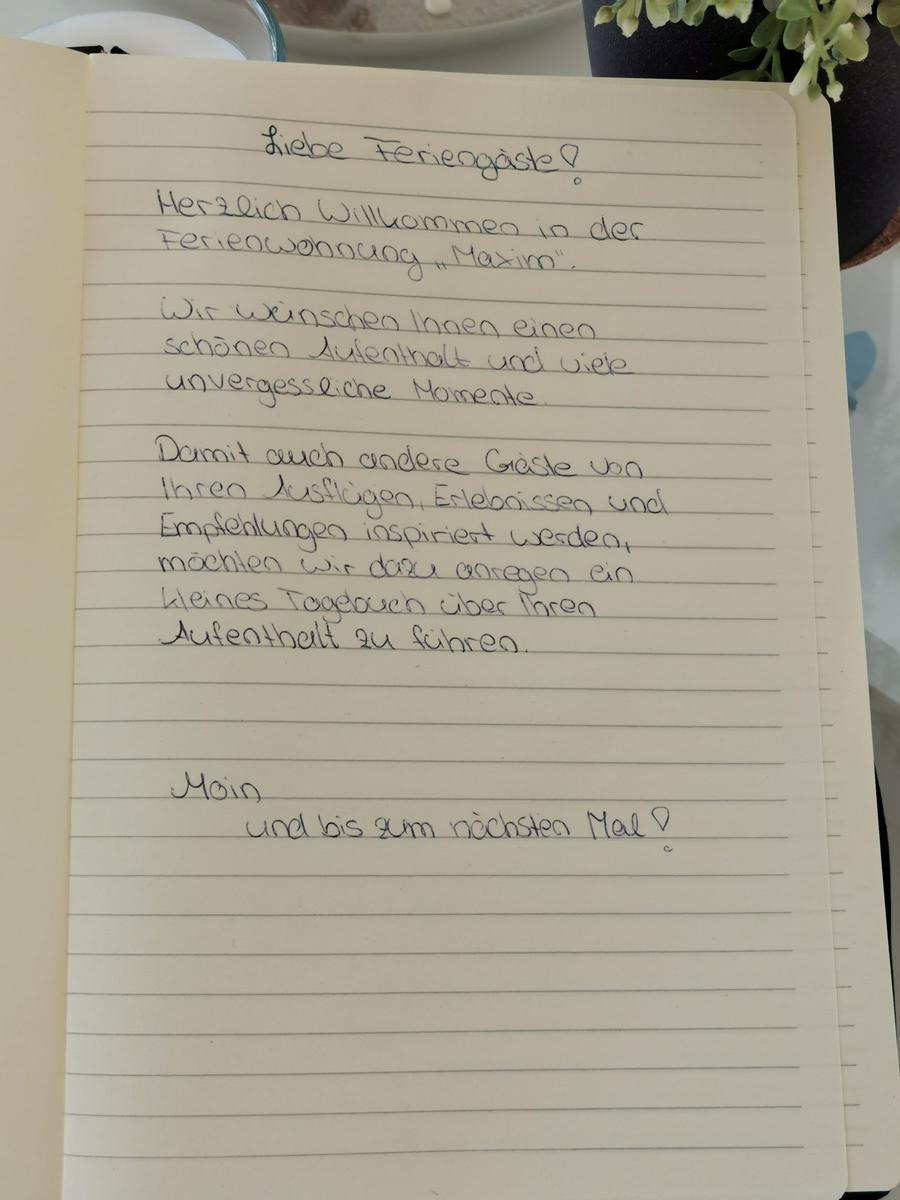 Liebe Feriengäste!
Herzlich Willkommen in der
Ferienwohnung „Maxim".
Wir wünschen Ihnen einen
schönen Aufenthalt und viele
unvergessliche Momente.
Damit auch andere Gäste von
Ihren Ausflügen, Erlebnissen und
Empfehlungen inspiriert werden,
möchten wir dazu anregen ein
kleines Tagebuch über Ihren
Aufenthalt zu führen.
Moin
und bis zum nächsten Mal!